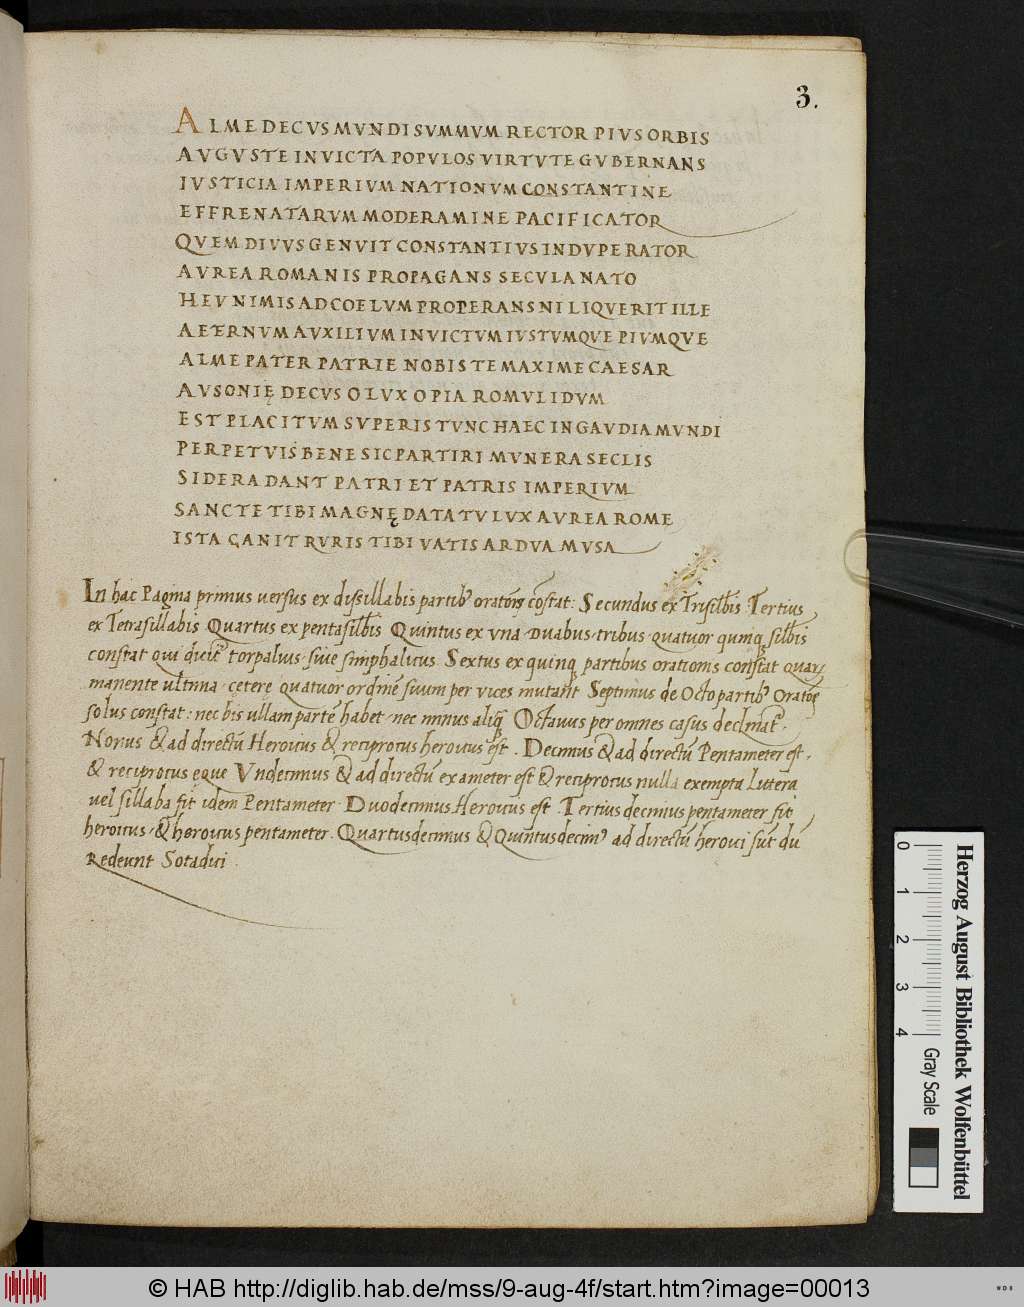 3.
ALME DECVS MVNDI SVMMVM RECTOR PIVS ORBIS
AVGVSTE INVICTA POPVLOS VIRTVTE GVBERNANS
IVSTICIA IMPERIVM NATIONVM CONSTANTINE
EFFRENATARVM MODERAMINE PACIFICATOR
QVEM DIVVS GENVIT CONSTANTIVS INDVPERATOR
AVREA ROMANIS PROPAGANS SECVLA NATO
HEV NIMIS AD COELVM PROPERANS NI LIQVERIT ILLE
AETERNVM AVXILIVM INVICTVM IVSTVMQVE PIVMQVE
ALME PATER PATRIE NOBIS TE MAXIME CAESAR
AVSONIĘ DECVS O LVX O PIA ROMVLIDVM
EST PLACITVM SVPERIS TVNC HAEC IN GAVDIA MVNDI
PERPETVIS BENE SIC PARTIRI MVNERA SECLIS
SIDERA DANT PATRI ET PATRIS IMPERIVM
SANCTE TIBI MAGNĘ DATA TV LVX AVREA ROME
ISTA CANIT RVRIS TIBI VATIS ARDVA MVSA
In hac Pagina primus uersus ex dissillabis partib' constat: Secundus ex Trisillbis Tertius
ex Tetrasillabis Quartus ex pentasillbis Quintus ex vna Duabus tribus quatuor sillbis
constat siue simphalicus Sextus ex quinq partibus orationis constat
manente ultima cętere quatuor ordinē suum per uices mutant Septimus de Octo partib'
solus constat: nec bis ullam partē habet nec minus aliq Octauus per omnes casus
Nonus & ad directū Heroicus & reciprocus heroicus est. Decimus & ad directū Pentameter est.
& reciprocus ęque Vndecimus & ad directū exameter est & reciprocus nulla exempta Littera
uel sillaba fit idem Pentameter Duodecimus Heroicus est Tertius decimus pentameter fit
heroicus & heroicus pentameter. Quartusdecimus & Quintusdecim' ad directū heroici sūt dū
Redeunt Sotadici
Herzog August Bibliothek Wolfenbüttel
0 1 2 3 4 Gray Scale
© HAB http://diglib.hab.de/mss/9-aug-4f/start.htm?image=00013